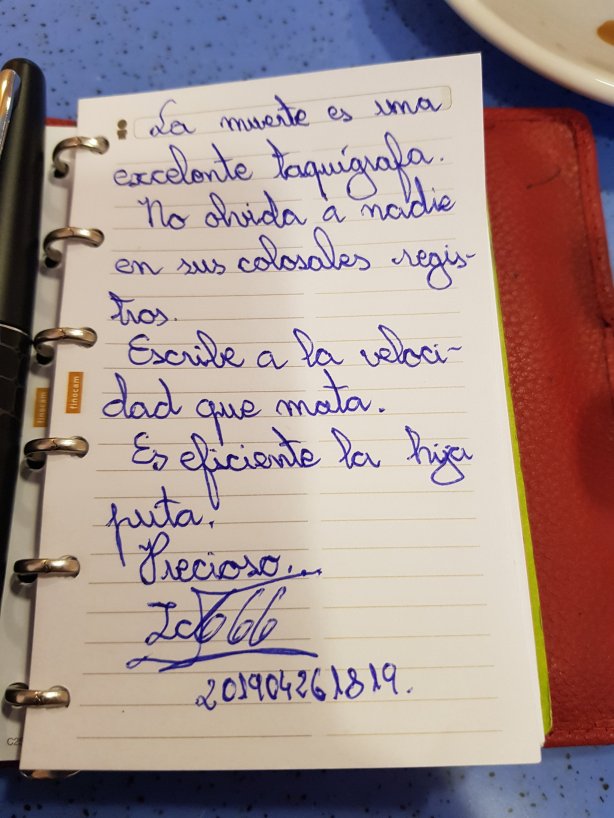 La muerte es una
excelente taquígrafa.
No olvida a nadie
en sus colosales regis-
tros.
Escribe a la veloci-
dad que mata.
Es eficiente la hija
puta.
Precioso...
666
201904261819.
finocam
finocam